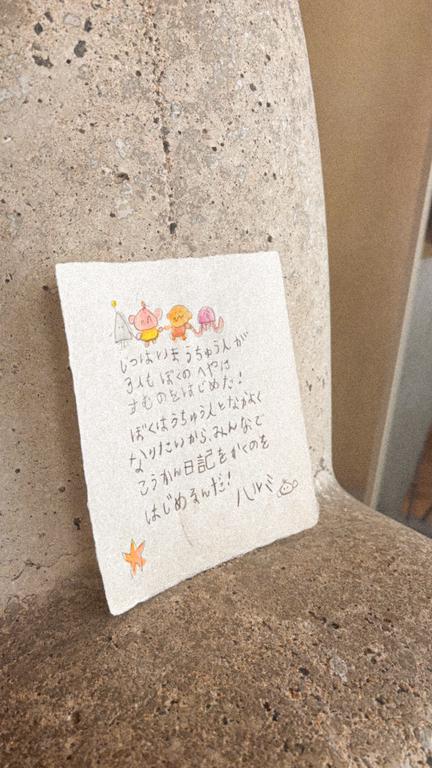 じつはいまうちゅう人が
3人もぼくのへやに
すものをはじめた!
ぼくはうちゅう人となかよく
なりたいから、みんなで
こうかん日記をかくのを
はじめるんだ!
ハルミ